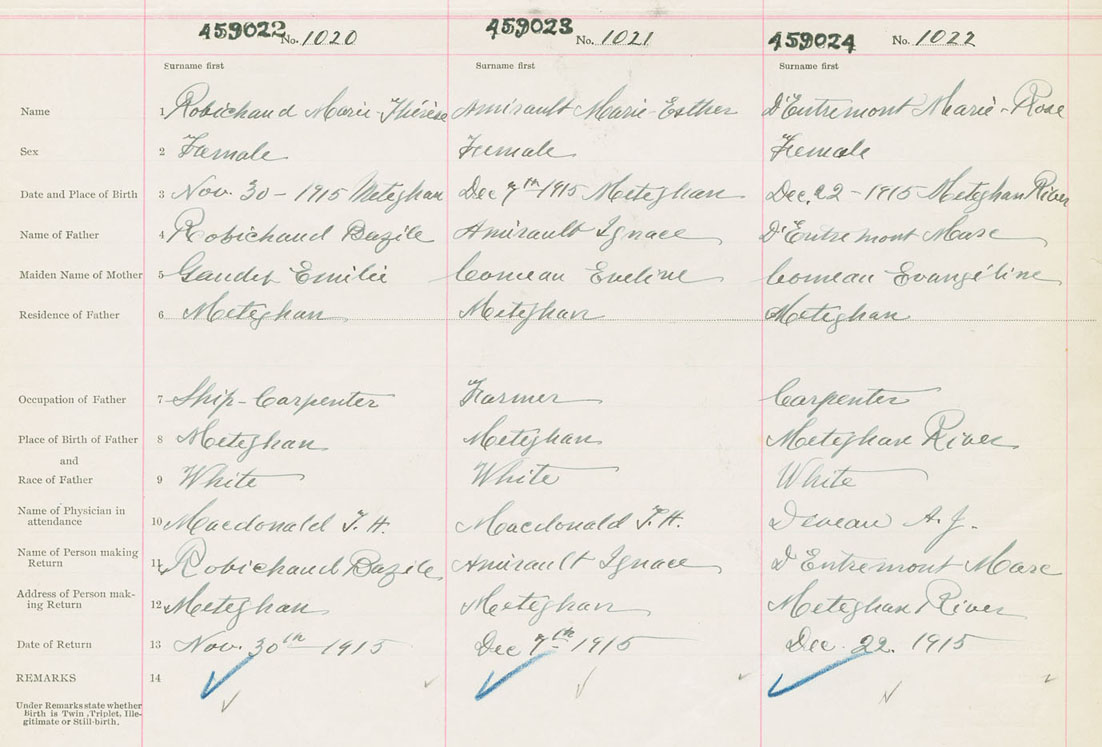 459022 No. 1020 459023 No. 1021 459024 No. 1022
Surname first Surname first Surname first
Name 1 Robichaud Marie-Thérèse Amirault Marie-Esther D'Entremont Marie-Rose
Sex 2 Female Female Female
Date and Place of Birth 3 Nov. 30 - 1915 Meteghan Dec 7th 1915 Meteghan Dec. 22 - 1915 Meteghan River
Name of Father 4 Robichaud Bazile Amirault Ignace D'Entremont Marc
Maiden Name of Mother 5 Gaudet Emilie Comeau Eveline Comeau Evangéline
Residence of Father 6 Meteghan Meteghan Meteghan
Occupation of Father 7 Ship-Carpenter Farmer Carpenter
Place of Birth of Father 8 Meteghan Meteghan Meteghan River
and
Race of Father 9 White White White
Name of Physician in
attendance 10 Macdonald T. H. Macdonald T. H. Deveau A. J.
Name of Person making
Return 11 Robichaud Bazile Amirault Ignace D'Entremont Marc
Address of Person mak-
ing Return 12 Meteghan Meteghan Meteghan River
Date of Return 13 Nov. 30th 1915 Dec 7th 1915 Dec. 22. 1915
REMARKS 14
Under Remarks state whether
Birth is Twin, Triplet, Ille-
gitimate or Still-birth.